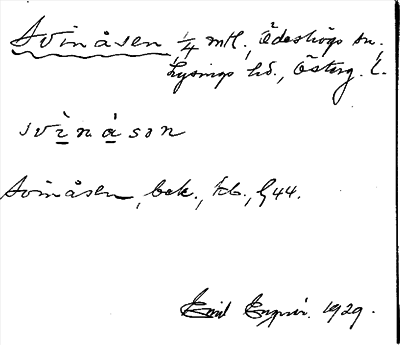 Svinåsen 1/4 mtl., Ödeshögs sn.
Lysings hd., Österg. l.
svìnåsən
Svinåsen, bek., kb., G44.
Emil 1929.